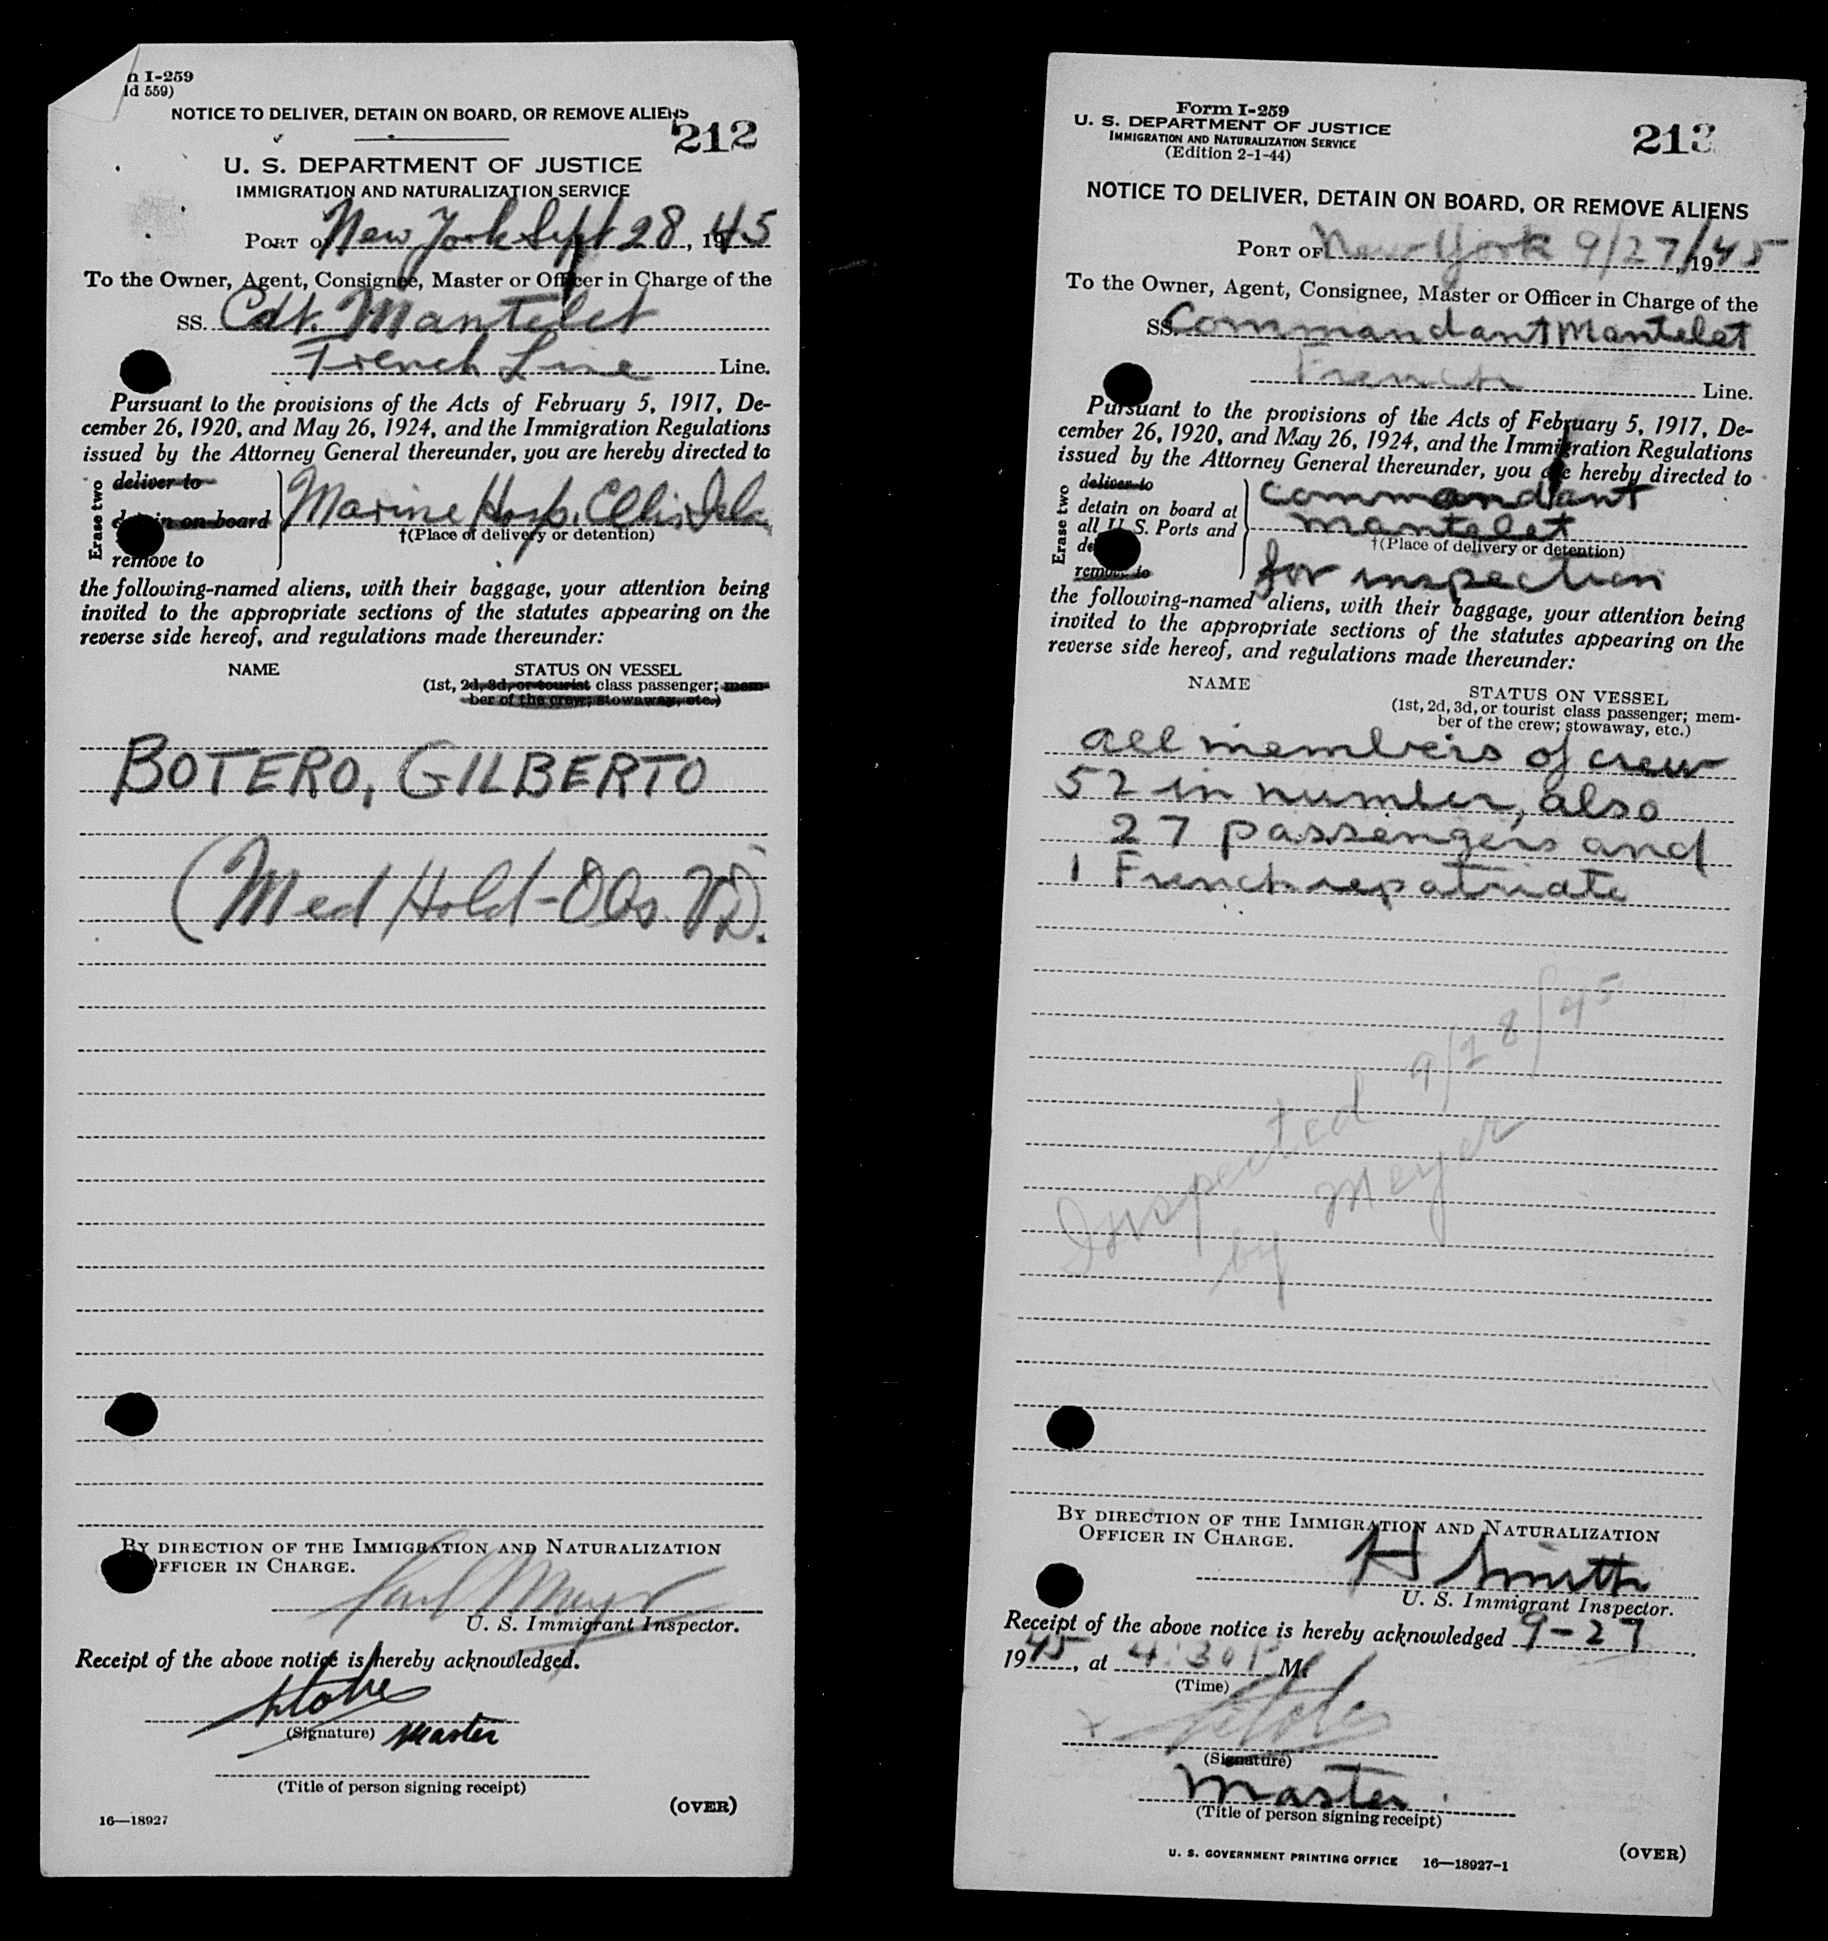 n I-259
ld 559)
NOTICE TO DELIVER, DETAIN ON BOARD, OR REMOVE ALIENS
212
U. S. DEPARTMENT OF JUSTICE
IMMIGRATION AND NATURALIZATION SERVICE
PORT OF New York Sept 28, 1945
To the Owner, Agent, Consignee, Master or Officer in Charge of the
SS. Cdt. Mantelet
French Line Line.
Pursuant to the provisions of the Acts of February 5, 1917, De-
cember 26, 1920, and May 26, 1924, and the Immigration Regulations
issued by the Attorney General thereunder, you are hereby directed to
Erase two
deliver to
detain on board
remove to
Marine Hosp. Ellis Isla
†(Place of delivery or detention)
the following-named aliens, with their baggage, your attention being
invited to the appropriate sections of the statutes appearing on the
reverse side hereof, and regulations made thereunder:
NAME STATUS ON VESSEL
(1st, 2d, 3d, or tourist class passenger; mem-
ber of the crew; stowaway, etc.)
BOTERO, GILBERTO
(Med Hold - Obs. VD.
BY DIRECTION OF THE IMMIGRATION AND NATURALIZATION
OFFICER IN CHARGE.
U. S. Immigrant Inspector.
Receipt of the above notice is hereby acknowledged.
(Signature) Master
(Title of person signing receipt)
(OVER)
16—18927
Form I-259
U. S. DEPARTMENT OF JUSTICE
IMMIGRATION AND NATURALIZATION SERVICE
(Edition 2-1-44)
213
NOTICE TO DELIVER, DETAIN ON BOARD, OR REMOVE ALIENS
PORT OF New York 9/27/, 1945
To the Owner, Agent, Consignee, Master or Officer in Charge of the
SS. Commandant Mantelet
French Line.
Pursuant to the provisions of the Acts of February 5, 1917, De-
cember 26, 1920, and May 26, 1924, and the Immigration Regulations
issued by the Attorney General thereunder, you are hereby directed to
Erase two
deliver to
detain on board at
all U. S. Ports and
de
remove to
Commandant
Mantelet
†(Place of delivery or detention)
for inspection
the following-named aliens, with their baggage, your attention being
invited to the appropriate sections of the statutes appearing on the
reverse side hereof, and regulations made thereunder:
NAME STATUS ON VESSEL
(1st, 2d, 3d, or tourist class passenger; mem-
ber of the crew; stowaway, etc.)
all members of crew
52 in number, also
27 passengers and
1 French repatriate
Inspected 9/28/45
by Meyer
BY DIRECTION OF THE IMMIGRATION AND NATURALIZATION
OFFICER IN CHARGE.
H Smith
U. S. Immigrant Inspector.
Receipt of the above notice is hereby acknowledged 9-27
1945, at 4:30 P M.
(Time)
x
(Signature)
Master
(Title of person signing receipt)
(OVER)
U. S. GOVERNMENT PRINTING OFFICE 16—18927-1